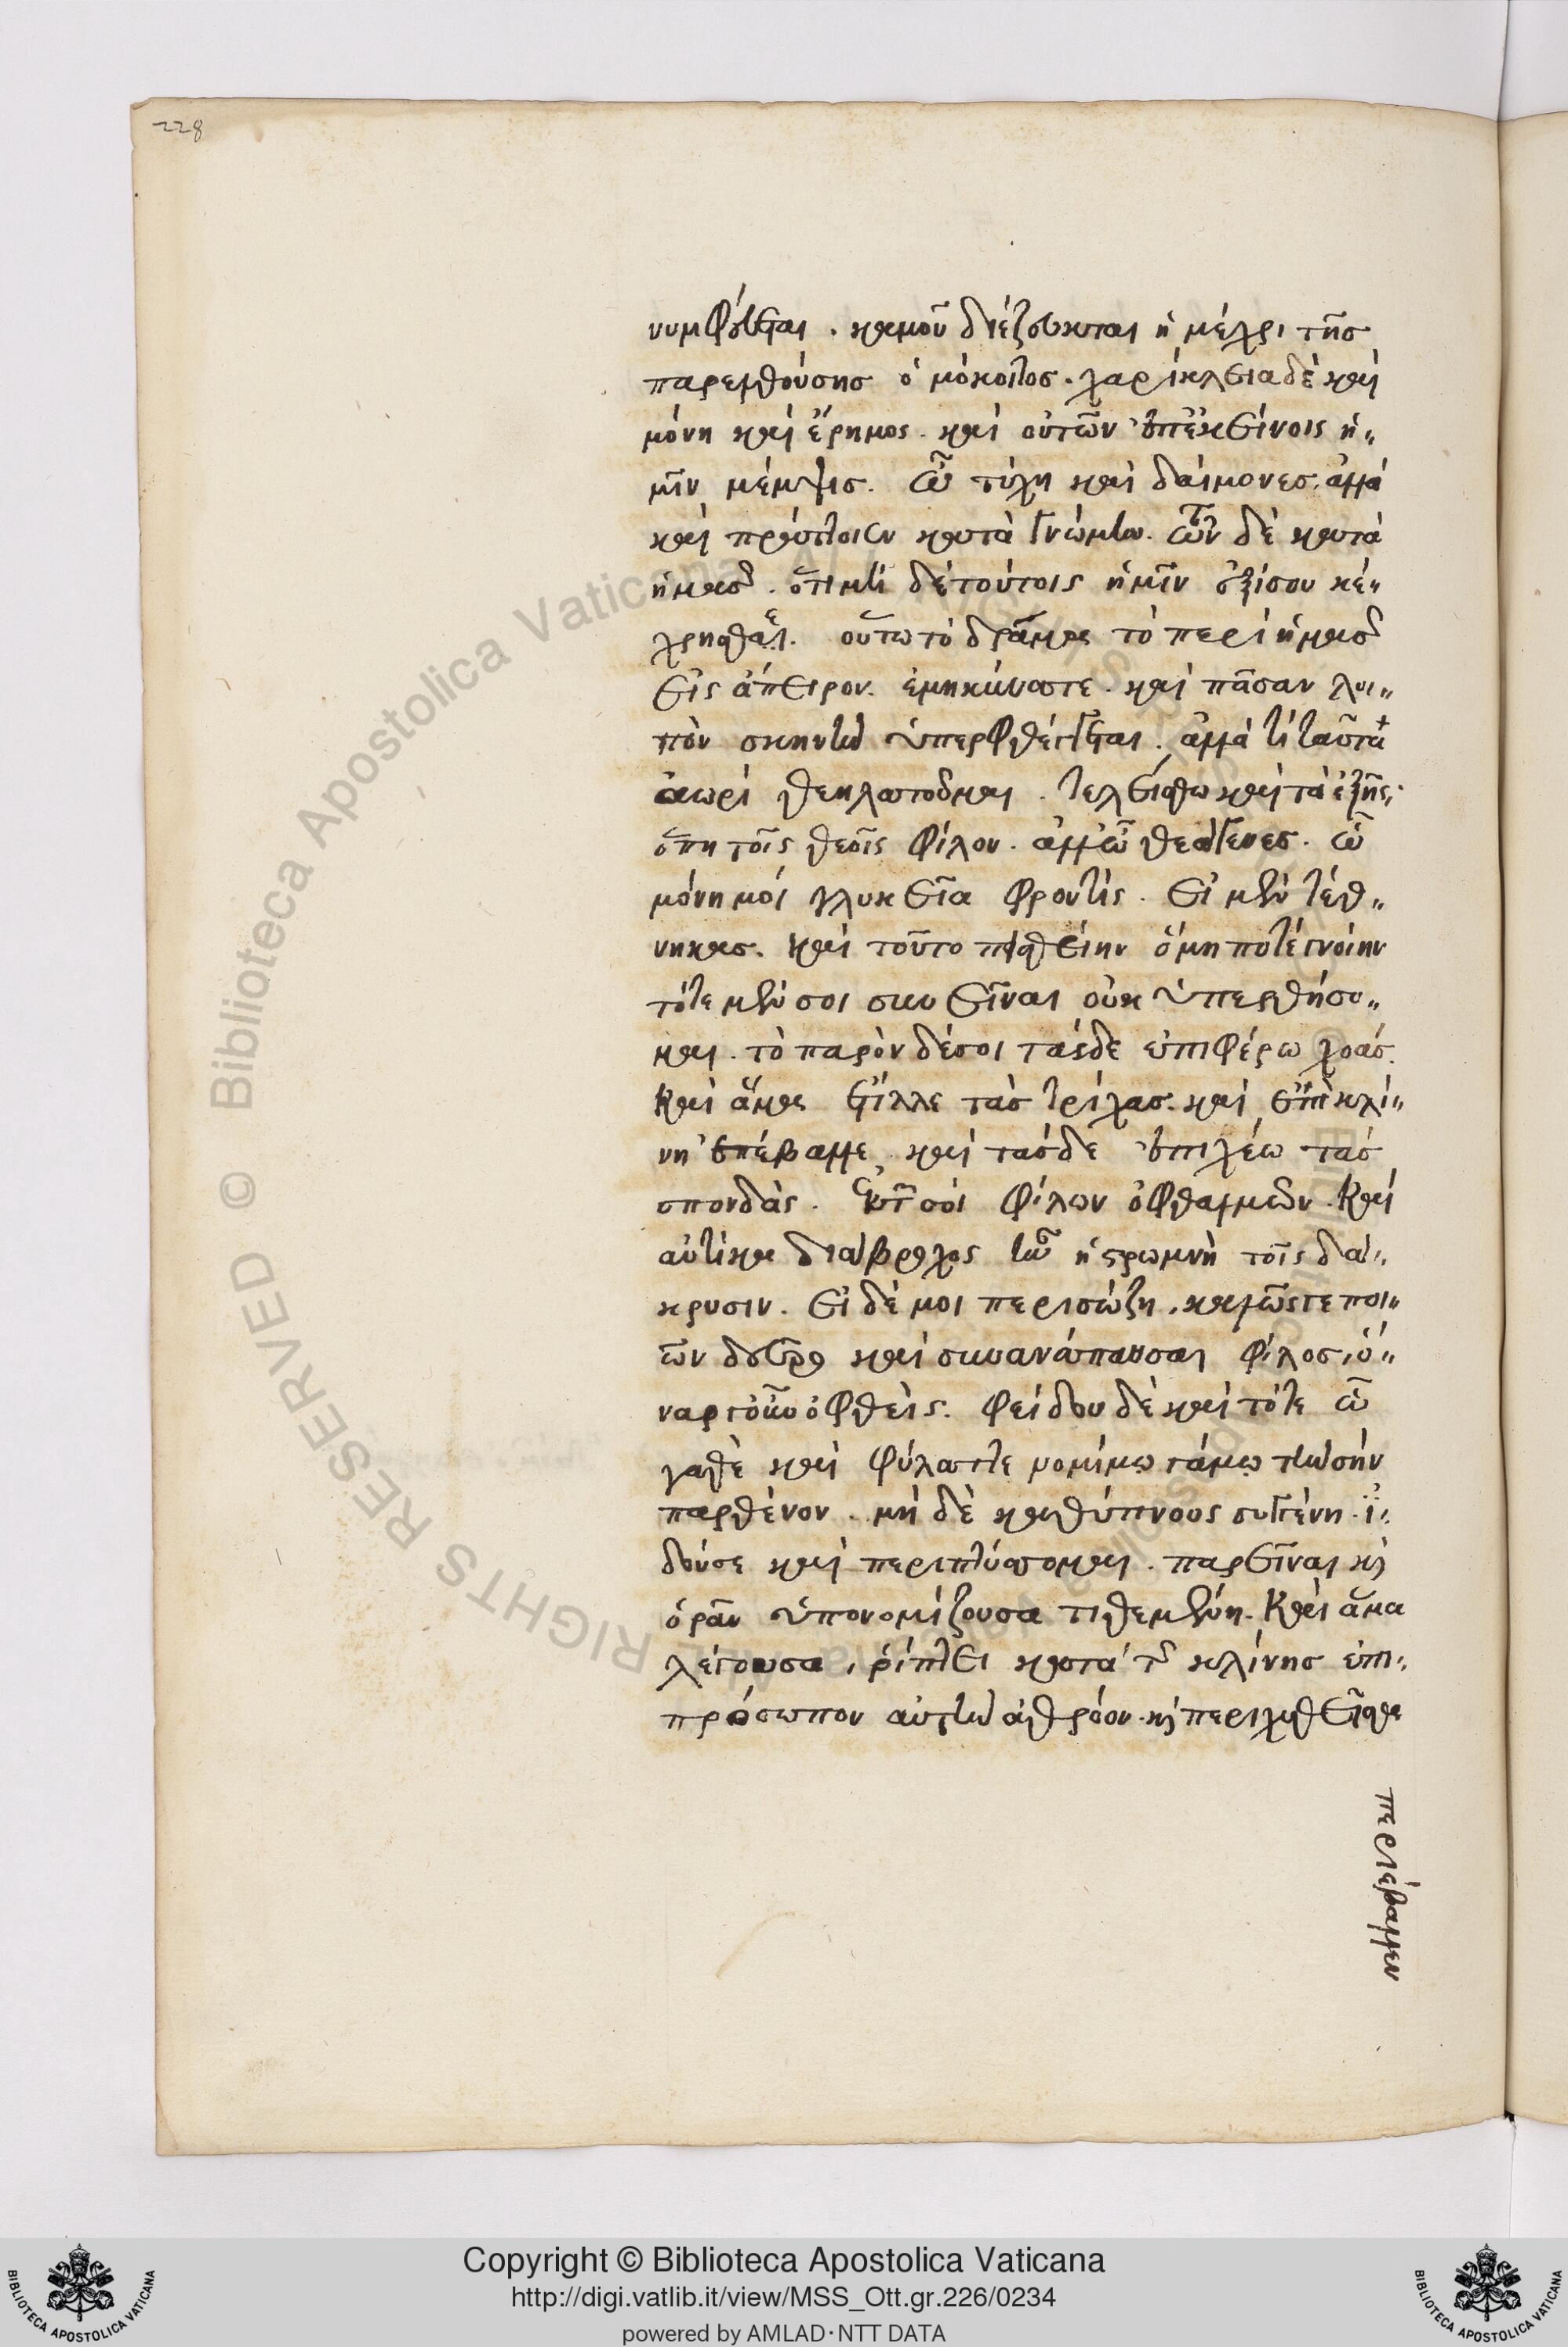 228
νυμφεύεται. κἀμοῦ διέζευκται ἡ μέχρι τῆς
παρελθούσης ὁμόκοιτος. χαρίκλεια δὲ καὶ
μόνη καὶ ἔρημος. καὶ οὔπω ἐπ' ἐκείνοις ἡ
μῖν μέμψις. ὦ τύχη καὶ δαίμονες. ἀλλὰ
καὶ πράττοιεν κατὰ γνώμην. τῶν δὲ κατὰ
ἡμᾶς. ὅτι μὴ δὲ τούτοις ἡμῖν ἐξίσου κέ
χρησθε. οὕτω τὸ δρᾶμα τὸ περὶ ἡμᾶς
εἰς ἄπειρον. ἐμηκύνατε. καὶ πᾶσαν λοι
πὸν σκηνὴν ὑπερφθέγγεται. ἀλλὰ τί ταῦτα
ἀωρὶ θεηλατοῦμαι. τελείσθω καὶ τὰ ἑξῆς,
ὅπη τοῖς θεοῖς φίλον. ἀλλ' ὦ θεάγενες. ὦ
μόνη μοί γλυκεῖα φροντίς. εἰ μὲν τέθ
νηκας. καὶ τοῦτο πισθείην ὃ μή ποτε γνοίην
τότε μὲν σοι συνεῖναι οὐκ ὑπερθήσο
μαι. τὸ παρὸν δέ σοι τάσδε ἐπιφέρω χοάς.
καὶ ἅμα ἔτιλλε τὰς τρίχας. καὶ τῇ κλί
νη ἐπέβαλλε. καὶ τάσδε ἐπιχέω τὰς
σπονδάς. ἐκ τῶν σοὶ φίλων ὀφθαλμῶν. καὶ
αὐτίκα διάβροχος ἦν ἡ στρωμνὴ τοῖς δά
κρυσιν. εἰ δέ μοι περισώζη, καλῶς γε ποι
ῶν δεῦρο καὶ συνανάπαυσαι φίλος, ὄ
ναρ γοῦν ὀφθείς. φείδου δὲ καὶ τότε ὦ
γαθὲ καὶ φύλαττε νομίμῳ γάμῳ τὴν σὴν
παρθένον. μὴ δὲ καθ' ὕπνους συγγένη. ἰ
δού σε καὶ περιπτύσσομαι. παρεῖναι καὶ
ὁρᾶν ὑπονομίζουσα τιθεμένη. καὶ ἅμα
λέγουσα, ῥίπτει κατὰ τῆς κλίνης ἐπι
πρόσωπον αὑτὴν ἀθρόον. καὶ περιχυθεῖσα
περιέβαλλεν
Copyright © Biblioteca Apostolica Vaticana
http://digi.vatlib.it/view/MSS_Ott.gr.226/0234
powered by AMLAD·NTT DATA